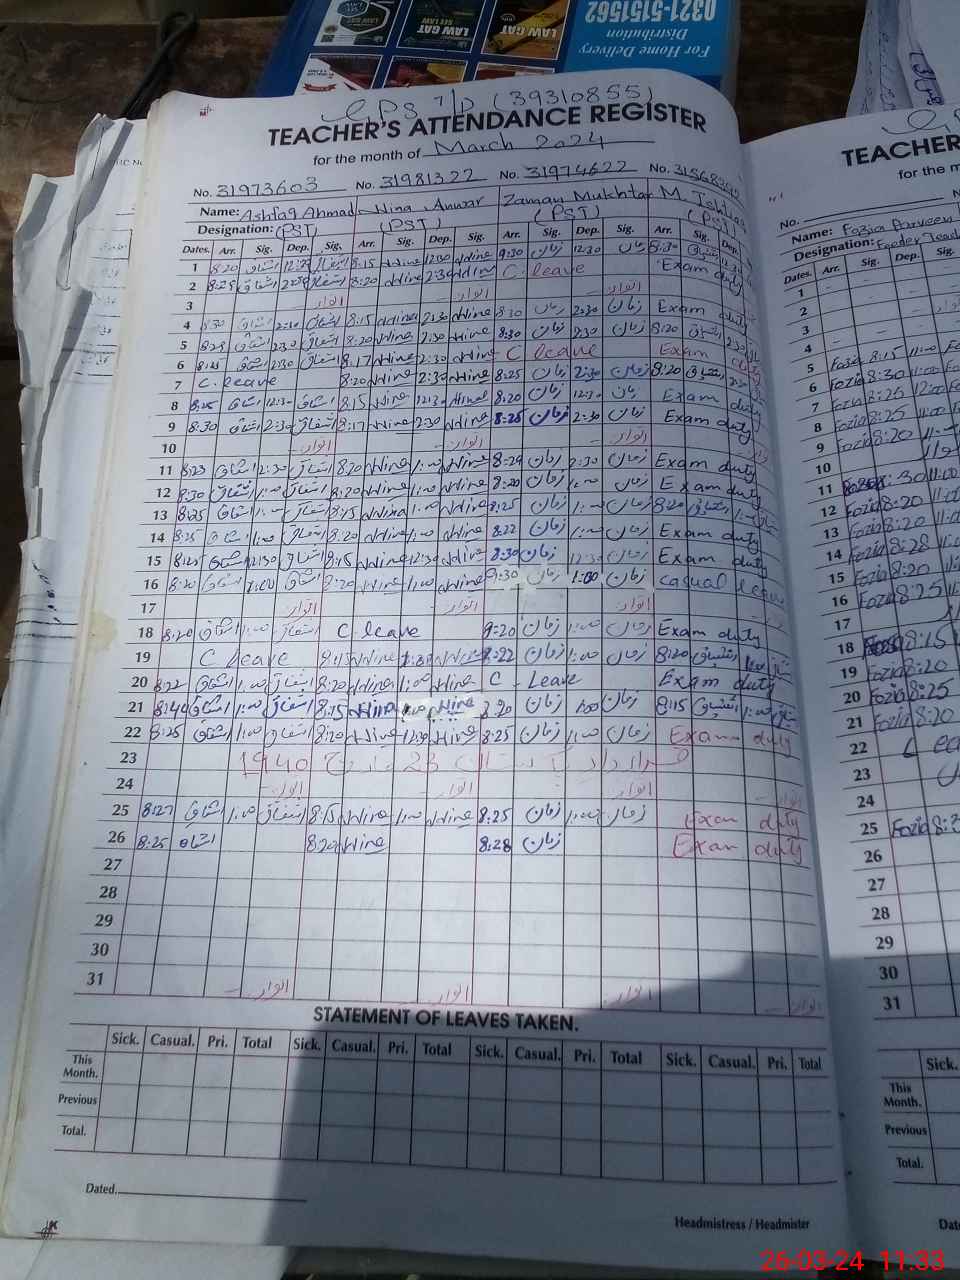 0321-5151562
Distribution
For Home Delivery
LAW GAT
LAW GAT
GPS 7/D (39310855)
TEACHER'S ATTENDANCE REGISTER
for the month of March 2024
No. 31973603 No. 31981322 No. 31974622 No.
Name: Ashfaq Ahmad Hina Anwar Zaman Mukhtar M. Ishtiaq
Designation: (PST) (PST) (PST) (PST)
Dates. Arr. Sig. Dep. Sig. Arr. Sig. Dep. Sig. Arr. Sig. Dep. Sig. Arr. Sig. Dep.
1 8:20 اشفاق 12:30 اشفاق 8:15 Hina 12:30 Hina 9:30 زمان 12:30 زمان 8:30
2 8:25 اشفاق 2:30 اشفاق 8:20 Hina 2:30 Hina C. leave Exam duty
3 اتوار اتوار اتوار
4 8:30 اشفاق 2:30 اشفاق 8:15 Hina 2:30 Hina 8:30 زمان 2:30 زمان Exam duty
5 8:28 اشفاق 2:30 اشفاق 8:20 Hina 2:30 Hina 8:30 زمان 2:30 زمان 8:20 اشتیاق 2:30
6 8:25 اشفاق 2:30 اشفاق 8:17 Hina 2:30 Hina C leave Exam duty
7 C. leave 8:20 Hina 2:30 Hina 8:25 زمان 2:30 زمان 8:20 اشتیاق
8 8:25 اشفاق 12:30 اشفاق 8:15 Hina 12:30 Hina 8:20 زمان 12:30 زمان Exam duty
9 8:30 اشفاق 2:30 اشفاق 8:17 Hina 2:30 Hina 8:25 زمان 2:30 زمان Exam duty
10 اتوار اتوار اتوار
11 8:23 اشفاق 2:30 اشفاق 8:20 Hina 1:00 Hina 8:29 زمان 2:30 زمان Exam duty
12 8:30 اشفاق 1:00 اشفاق 8:20 Hina 1:00 Hina 8:20 زمان 1:00 زمان Exam duty
13 8:25 اشفاق 1:00 اشفاق 8:15 Hina 1:00 Hina 8:25 زمان 1:00 زمان 8:20 اشتیاق 1:00
14 8:25 اشفاق 1:00 اشفاق 8:20 Hina 1:00 Hina 8:22 زمان 1:00 زمان Exam duty
15 8:25 اشفاق 12:30 اشفاق 8:15 Hina 12:30 Hina 8:30 زمان 12:30 زمان Exam duty
16 8:20 اشفاق 1:00 اشفاق 8:20 Hina 1:00 Hina 9:30 زمان 1:00 زمان casual leave
17 اتوار اتوار اتوار
18 8:20 اشفاق 1:00 اشفاق C. leave 9:20 زمان 1:00 زمان Exam duty
19 C. leave 8:15 Hina Hina 8:22 زمان 1:00 زمان 8:20 اشتیاق
20 8:22 اشفاق 1:00 اشفاق 8:20 Hina 1:00 Hina C - Leave Exam duty
21 8:40 اشفاق 1:00 اشفاق 8:15 Hina Hina 8:20 زمان 1:00 زمان 8:15 اشتیاق 1:00
22 8:25 اشفاق 1:00 اشفاق 8:20 Hina 12:30 Hina 8:25 زمان 1:00 زمان Exam duty
23 قرارداد پاکستان 23 مارچ 1940
24 اتوار اتوار اتوار
25 8:27 اشفاق 1:00 اشفاق 8:15 Hina 1:00 Hina 8:25 زمان 1:00 زمان Exam duty
26 8:25 اشفاق 8:20 Hina 8:28 زمان Exam duty
27
28
29
30
31 اتوار اتوار اتوار اتوار
STATEMENT OF LEAVES TAKEN.
Sick. Casual. Pri. Total Sick. Casual. Pri. Total Sick. Casual. Pri. Total Sick. Casual. Pri. Total
This Month.
Previous
Total.
Dated.
Headmistress / Headmister
TEACHER
for the m
No.
Name: Fozia Parveen
Designation: Feeder Teac
Dates. Arr. Sig. Dep. Sig.
1
2
3
4
5 Fozia 8:15 11:00
6 Fozia 8:30 11:00
7 Fozia 8:25 12:00
8 Fozia 8:25 11:00
9 Fozia 8:20
10
11 8:30 11:00
12 Fozia 8:20 11:00
13 Fozia 8:20
14 Fozia 8:28
15 Fozia 8:20
16 Fozia 8:25
17
18 8:15
19 Fozia 8:20
20 Fozia 8:25
21 Fozia 8:20
22
23
24
25 Fozia
26
27
28
29
30
31
Sick.
This Month.
Previous
Total.
26-03-24 11:33